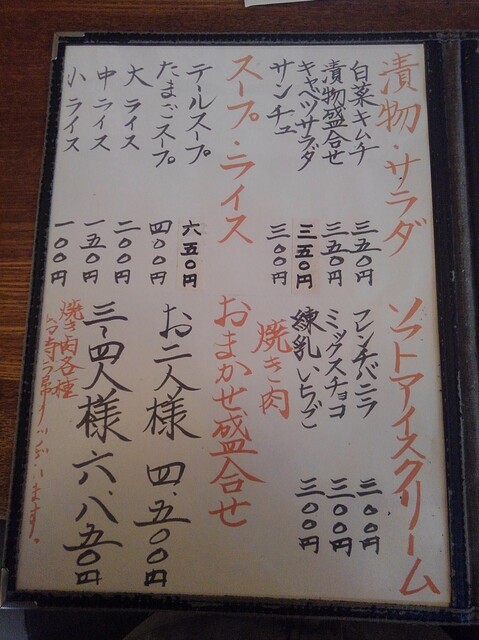 漬物・サラダ
白菜キムチ 三五〇円
漬物盛合せ 三五〇円
キャベツサラダ 三五〇円
サンチュ 三〇〇円
スープ・ライス
テールスープ 六五〇円
たまごスープ 四〇〇円
大ライス 二〇〇円
中ライス 一五〇円
小ライス 一〇〇円
ソフトアイスクリーム
フレンチバニラ 三〇〇円
ミックスチョコ 三〇〇円
練乳いちご 三〇〇円
焼き肉
おまかせ盛合せ
お二人様 四、五〇〇円
三〜四人様 六、八五〇円
焼き肉各種
ます。